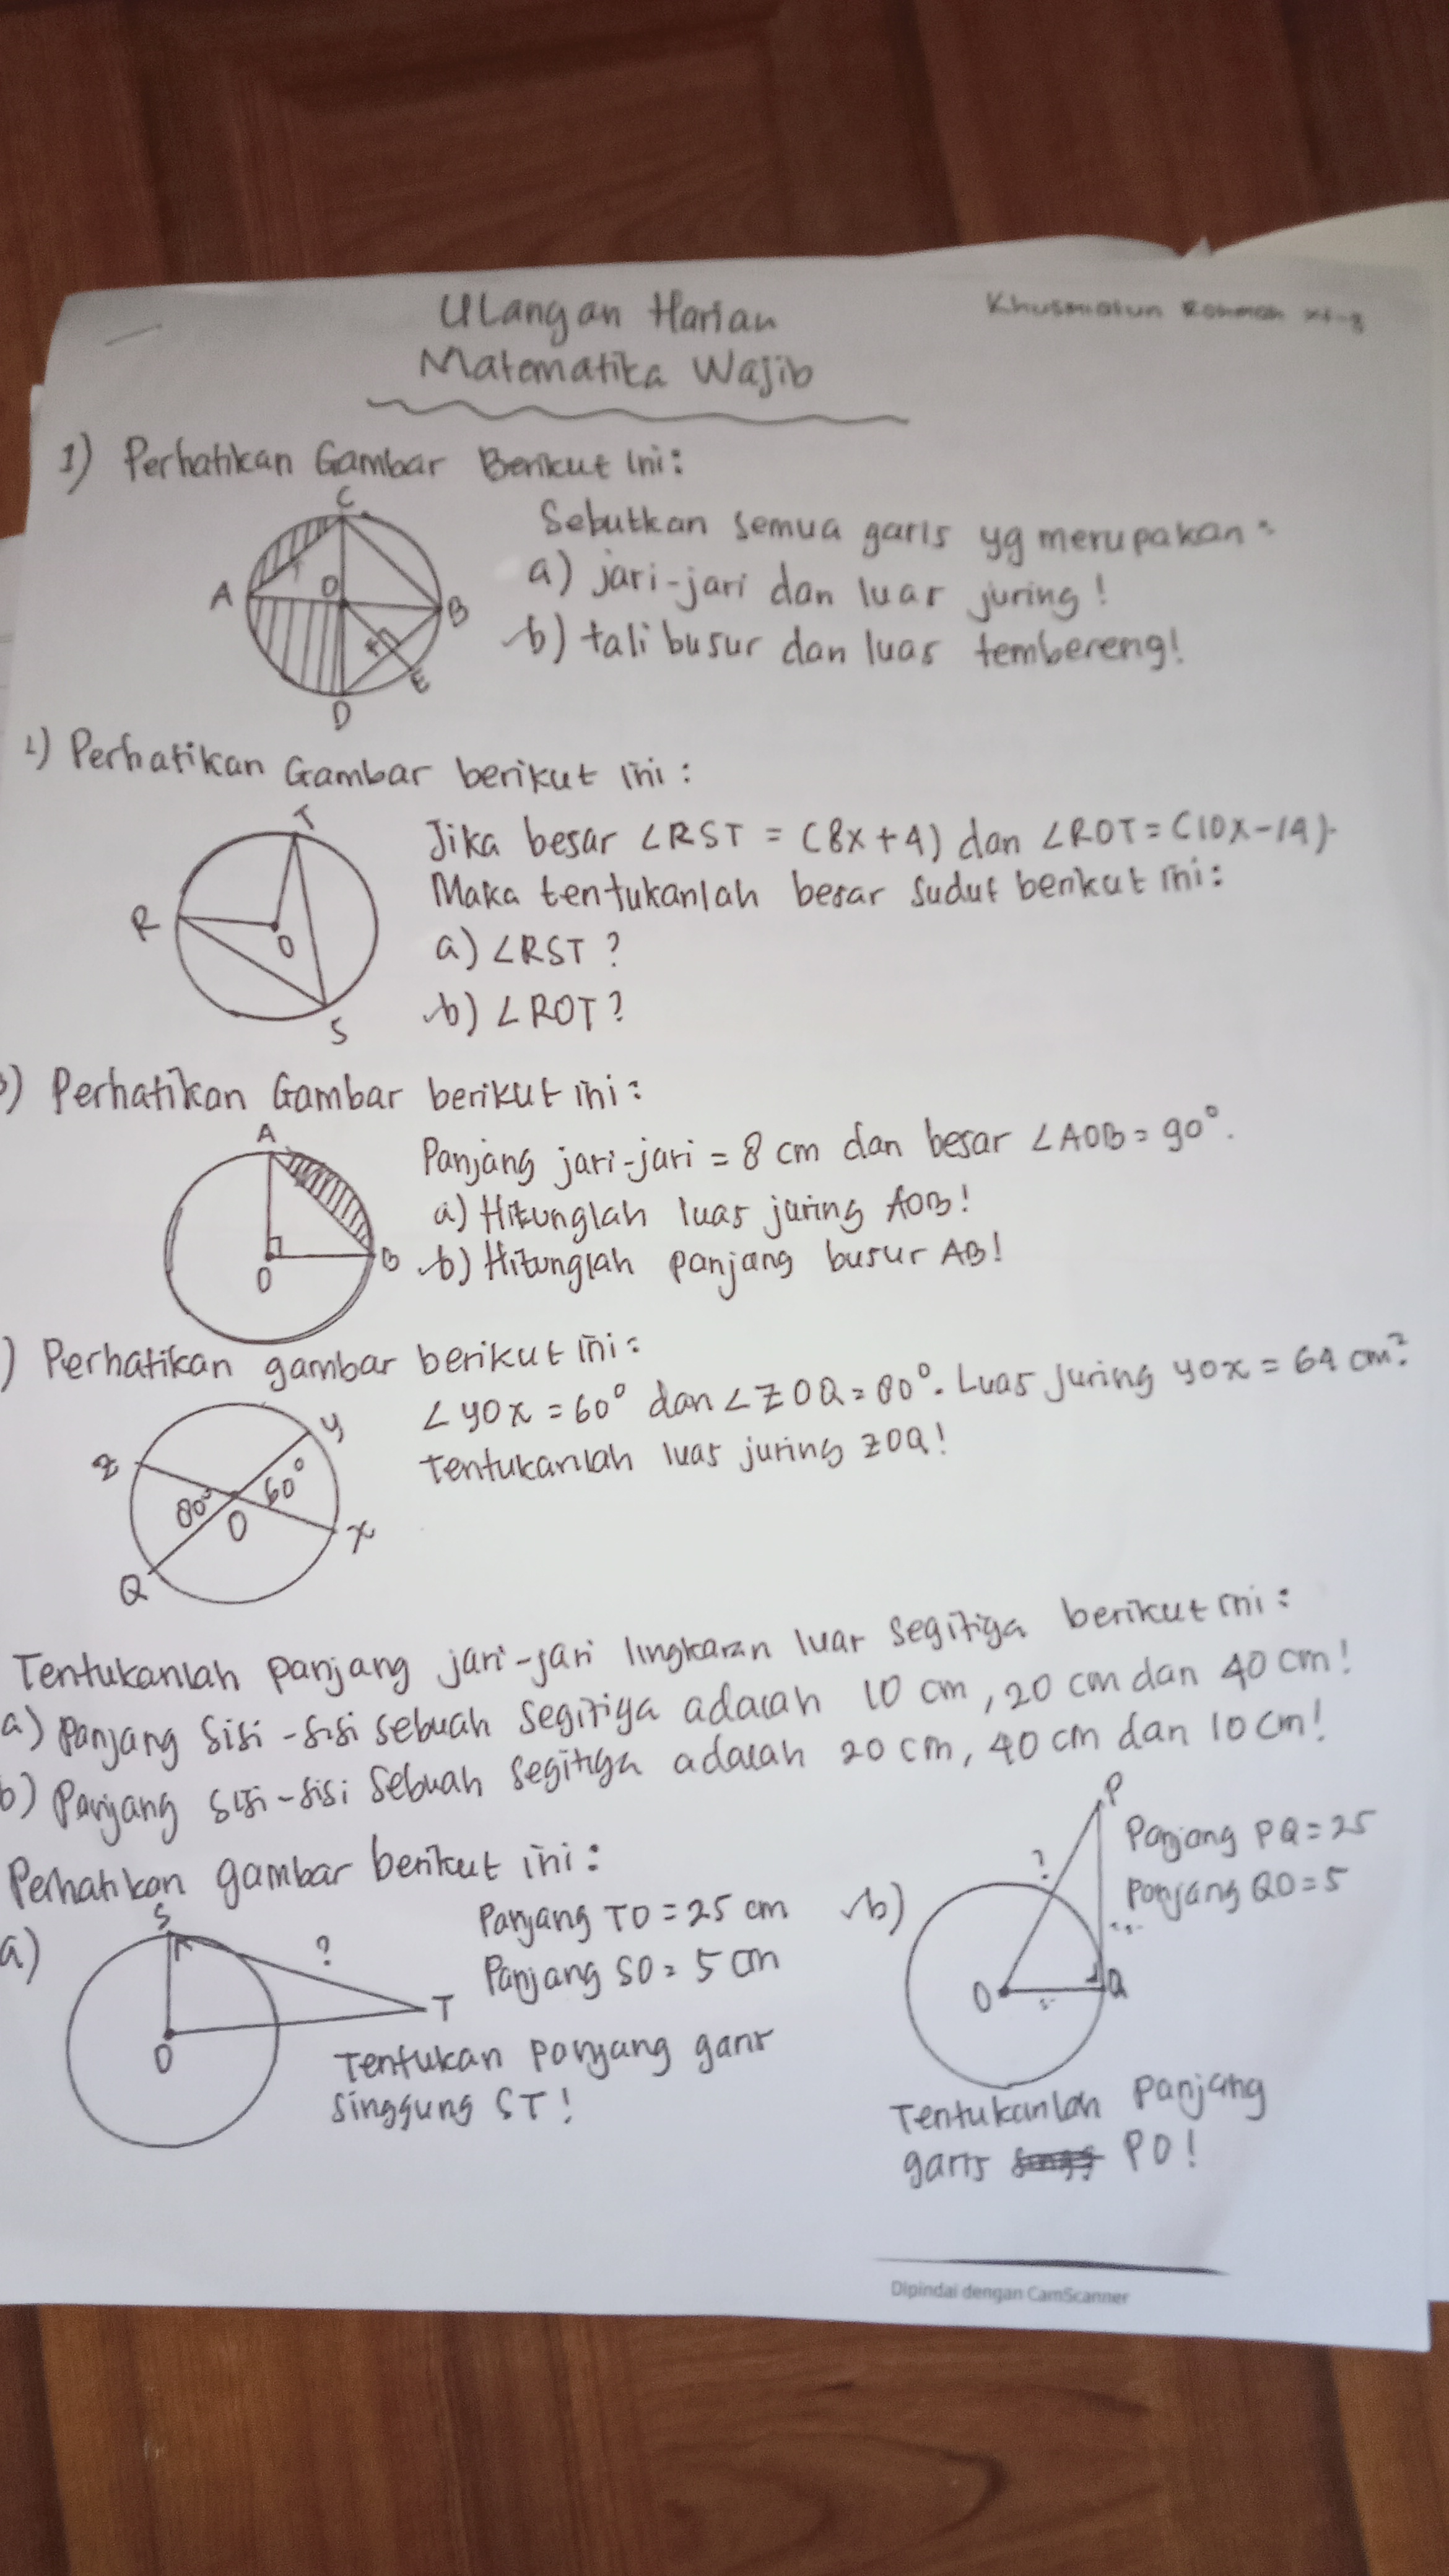 Ulangan Harian
Matematika Wajib
Khusmiatun Rohmah
1) Perhatikan Gambar Berikut Ini:
C
A
O
B
F
E
D
Sebutkan semua garis yg merupakan:
a) jari-jari dan luar juring!
b) tali busur dan luas tembereng!
2) Perhatikan Gambar berikut ini:
T
R
O
S
Jika besar ∠RST = (8x+4) dan ∠ROT = (10x-14).
Maka tentukanlah besar sudut berikut ini:
a) ∠RST?
b) ∠ROT?
) Perhatikan Gambar berikut ini:
A
O
B
Panjang jari-jari = 8 cm dan besar ∠AOB = 90°.
a) Hitunglah luas juring AOB!
b) Hitunglah panjang busur AB!
) Perhatikan gambar berikut ini:
Z
Y
80°
60°
O
X
Q
∠YOX = 60° dan ∠ZOQ = 80°. Luas juring YOX = 64 cm².
Tentukanlah luas juring ZOQ!
Tentukanlah panjang jari-jari lingkaran luar segitiga berikut ini:
a) Panjang sisi-sisi sebuah segitiga adalah 10 cm, 20 cm dan 40 cm!
b) Panjang sisi-sisi sebuah segitiga adalah 20 cm, 40 cm dan 10 cm!
Perhatikan gambar berikut ini:
a)
S
?
T
O
Panjang TO = 25 cm
Panjang SO = 5 cm
Tentukan panjang garis
singgung ST!
b)
P
?
O
Q
Panjang PQ = 25
Panjang QO = 5
Tentukanlah panjang
garis PO!
Dipindai dengan CamScanner